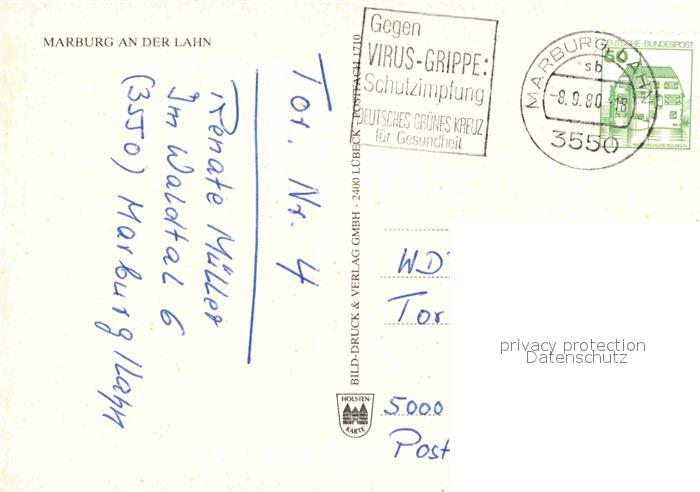 MARBURG AN DER LAHN
Tor. Nr. 4
Renate Müller
Im Waldtal 6
(3550) Marburg/Lahn
BILD-DRUCK & VERLAG GMBH - 2400 LÜBECK - POSTFACH 1710
HOLSTEN-
KARTE
Gegen
VIRUS-GRIPPE:
Schutzimpfung
DEUTSCHES GRÜNES KREUZ
für Gesundheit
MARBURG, LAHN 1
sb
-8.9.80-18
3550
DEUTSCHE BUNDESPOST
50
WD
Tor
5000
Post
privacy protection
Datenschutz